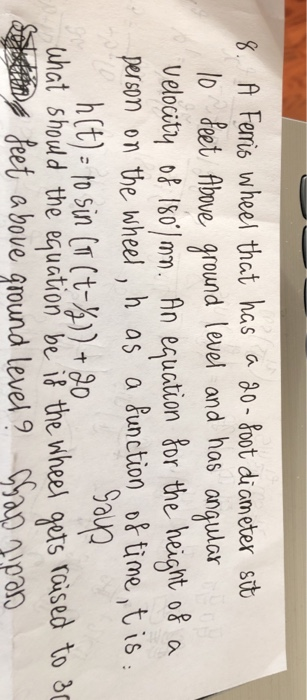 8. A Ferris wheel that has a 20-foot diameter sit
10 feet Above ground level and has angular
velocity of 180°/min. An equation for the height of a
person on the wheel, h as a function of time, t is:
h(t) = 10 sin (π (t-½)) + 20
what should the equation be if the wheel gets raised to 30
feet above ground level?